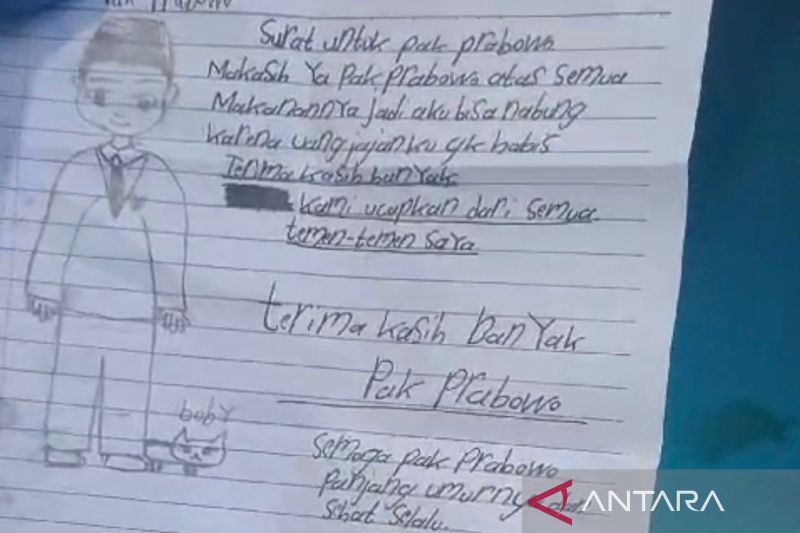 Pak Prabowo
Surat untuk pak prabowo
Makasih Ya Pak Prabowo atas semua
Makanannya jadi aku bisa nabung
karena uang jajanku gk habis
Terima kasih banyak
kami ucapkan dari semua
temen-temen saya
terima kasih banyak
Pak Prabowo
boby
semoga pak Prabowo
Panjang umurnya dan
sehat selalu.
ANTARA